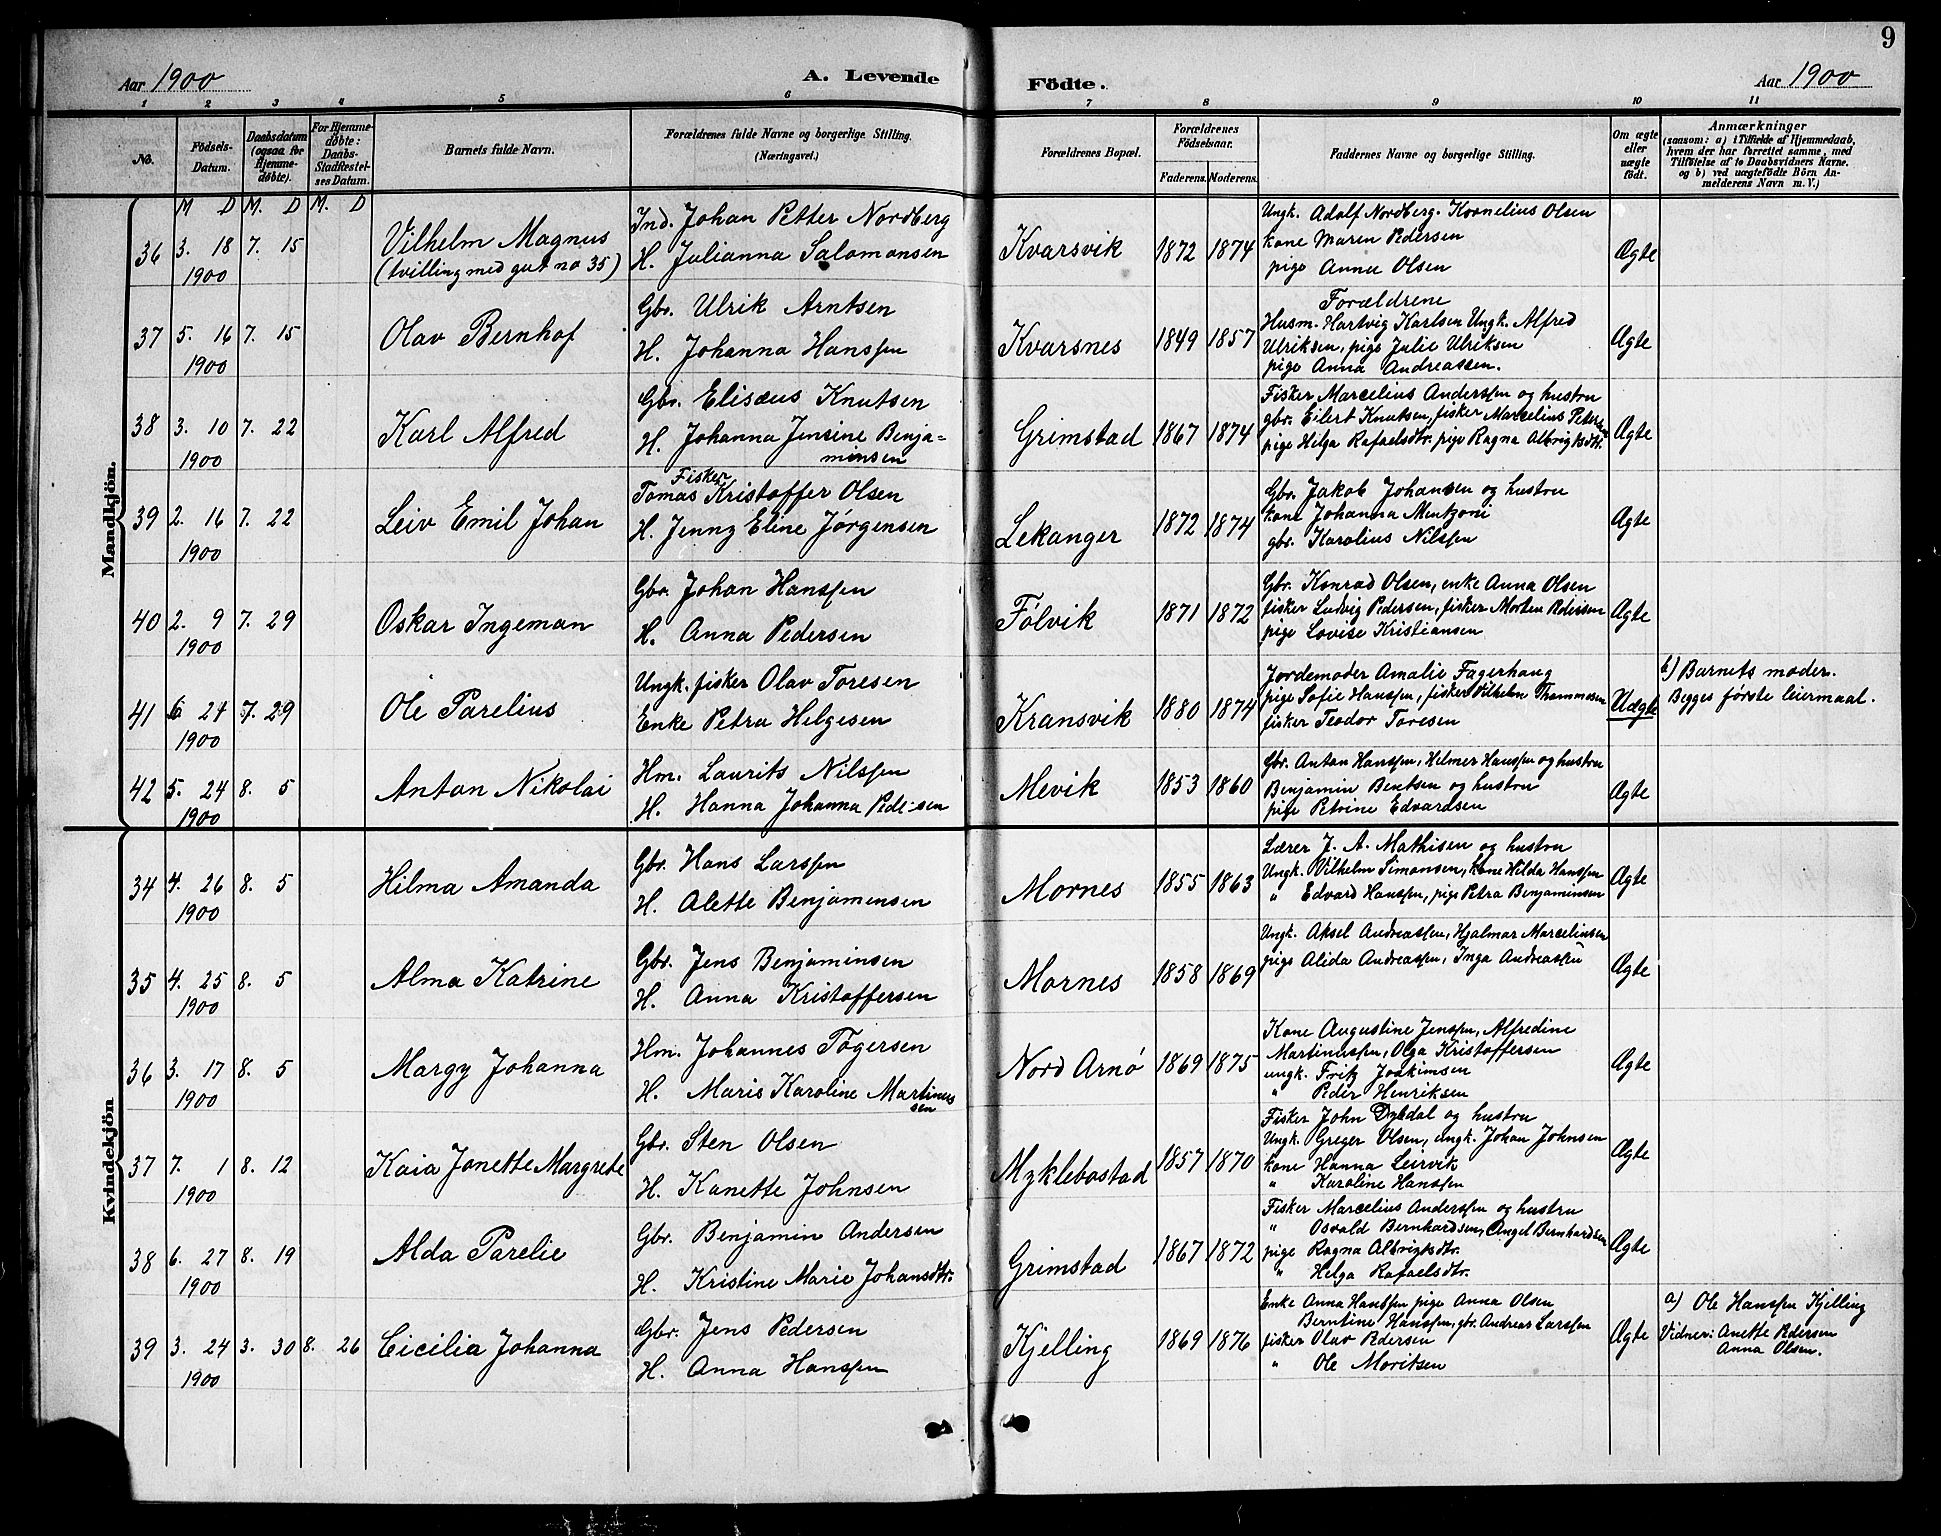 9
Aar 1900
A. Levende
Födte.
Aar 1900
1 2 3 4 5 6 7 8 9 10 11
No.
Födsels-
Datum.
Daabsdatum
(ogsaa for
Hjemme-
døbte).
For Hjemme-
døbte:
Daabs-
Stadfæstel-
ses Datum.
Barnets fulde Navn.
Forældrenes fulde Navne og borgerlige Stilling.
(Næringsvei.)
Forældrenes Bopæl.
Forældrenes
Födselsaar.
Faderens. Moderens.
Faddernes Navne og borgerlige Stilling.
Om ægte
eller
uægte
født.
Anmærkninger
(saasom: a) i Tilfælde af Hjemmedaab,
hvem der har forrettet samme, med
Tilføielse af to Daabsvidners Navne.
og b) ved uægtefödte Börn An-
melderens Navn m. V.)
M D M. D M. D
Mandkjön.
36 3. 18 7. 15
1900
Vilhelm Magnus
(tvilling med gut no 35)
Ind. Johan Petter Nordberg
H. Julianna Salomonsen
Kvarsvik 1872 1874
Ungk. Adolf Nordberg. Kornelius Olsen
kone Maren Pedersen
pige Anna Olsen
Ægte
37 5. 16 7. 15
1900
Olav Bernhof
Gbr. Ulrik Arntsen
H. Johanna Hanssen
Kvarsnes 1849 1857
Forældrene
Husm. Hartvig Karlsen Ungk. Alfred
Ulriksen, pige Julie Ulriksen
pige Anna Andreassen.
Ægte
38 3. 10 7. 22
1900
Karl Alfred
Gbr. Elisæus Knutsen
H. Johanna Jensine Benja=
minsen
Grimstad 1867 1874
Fisker Marcelius Anderssen og hustru
gbr. Eilert Knutsen, fisker Marcelius Petersen
pige Helga Rafaelsdtr. pige Ragna Albrigtsdtr.
Ægte
39 2. 16 7. 22
1900
Leiv Emil Johan
Fisker
Tomas Kristoffer Olsen
H. Jenny Eline Jørgensen
Lekanger 1872 1874
Gbr. Jakob Johansen og hustru
kone Johanna Mentzoni
gbr. Karolius Nilssen
Ægte
40 2. 9 7. 29
1900
Oskar Ingeman
Gbr. Johan Hanssen
H. Anna Pedersen
Følvik 1871 1872
Gbr. Konrad Olsen, enke Anna Olsen
fisker Ludvig Pedersen, fisker Morten Pedersen
pige Lovise Kristiansen
Ægte
41 6. 24 7. 29
1900
Ole Parelius
Ungk. fisker Olav Toresen
Enke Petra Helgesen
Kransvik 1880 1874
Jordemoder Amalie Fagerhaug
pige Sofie Hanssen, fisker Vilhelm Thommesen
fisker Teodor Toresen
Uægte
b) Barnets moder.
Begges første leiermaal.
42 5. 24 8. 5
1900
Anton Nikolai
Hm. Laurits Nilssen
H. Hanna Johanna Pedersen
Mevik 1853 1860
Gbr. Anton Hanssen, Helmer Hanssen og hustru
Benjamin Bentsen og hustru
pige Petrine Edvardsen
Ægte
Kvindekjön
34 4. 26 8. 5
1900
Hilma Amanda
Gbr. Hans Larssen
H. Alette Benjaminsen
Mornes 1855 1863
Lærer J. A. Mathisen og hustru
Ungk. Vilhelm Simonsen, kone Hilda Hanssen
" Edvard Hanssen, pige Petra Benjaminsen
Ægte
35 4. 25 8. 5
1900
Alma Katrine
Gbr. Jens Benjaminsen
H. Anna Kristoffersen
Mornes 1858 1869
Ungk. Aksel Andreassen, Hjalmar Marcelinsen
pige Alida Andreassen, Inga Andreassen
Ægte
36 3. 17 8. 5
1900
Margy Johanna
Hm. Johannes Togersen
H. Maris Karoline Martinus
sen
Nord Arnø 1869 1875
Kone Augustine Jenssen, Alfredine
Martinussen, Olga Kristoffersen
ungk. Fritz Joakimsen
" Peder Henriksen
Ægte
37 7. 1 8. 12
1900
Kaia Jonette Margrete
Gbr. Sten Olsen
H. Kanette Johnsen
Myklebostad 1857 1870
Fisker John Dybdal og hustru
Ungk. Greger Olsen, ungk. Johan Johnsen
kone Hanna Leirvik
" Karoline Hanssen
Ægte
38 6. 27 8. 19
1900
Alda Parelie
Gbr. Benjamin Andersen
H. Kristine Marie Johansdtr.
Grimstad 1867 1872
Fisker Marcelius Anderssen og hustru
" Osvald Bernhardsen, Angel Bernhardsen
pige Ragna Albrigtsdtr.
" Helga Rafaelsdtr.
Ægte
39 3. 24 3. 30 8. 26
1900
Cicilia Johanna
Gbr. Jens Pedersen
H. Anna Hanssen
Kjelling 1869 1876
Enke Anna Hanssen pige Anna Olsen
Berntine Hanssen, gbr. Andreas Larssen
fisker Olav Pedersen
" Ole Moritsen
Ægte
a) Ole Hanssen Kjelling
Vidner: Anette Pedersen
Anna Olsen.